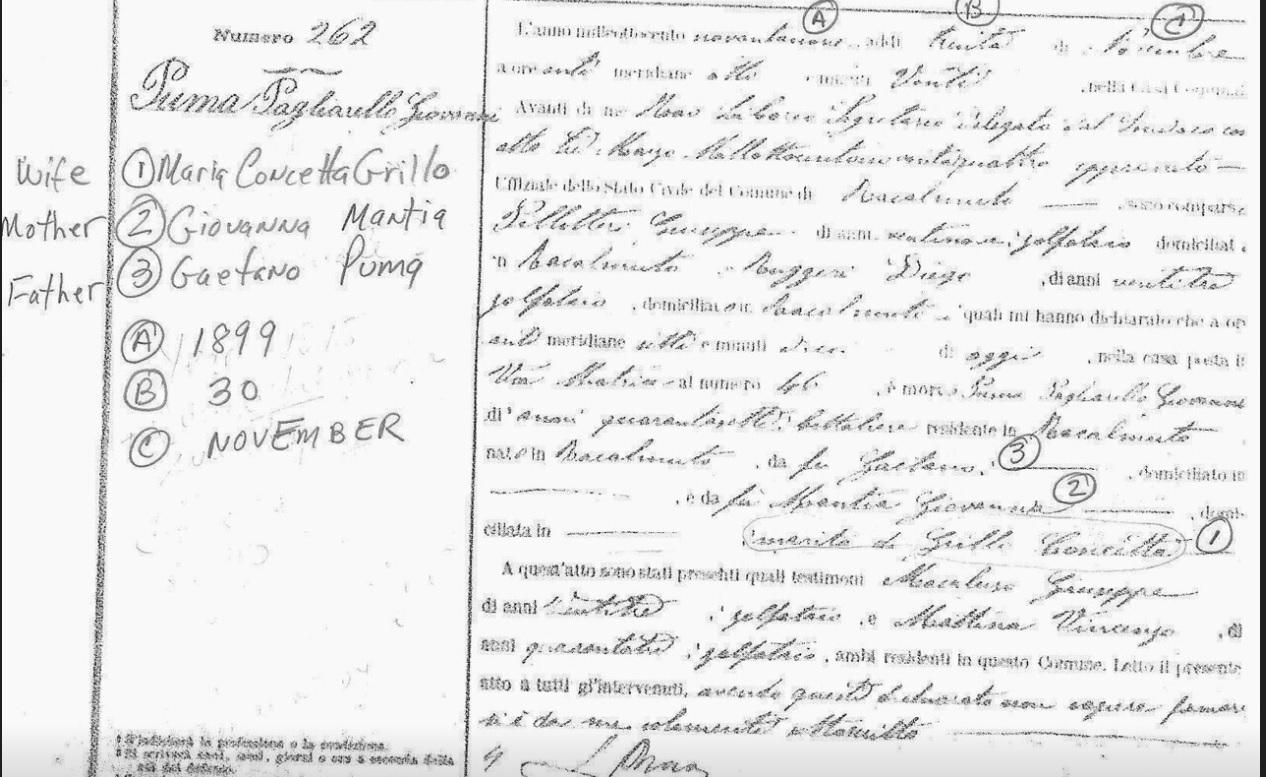 Numero 262
Puma Pagliarello Giovanni
Wife ① Maria Concetta Grillo
Mother ② Giovanna Mantia
Father ③ Gaetano Puma
Ⓐ 1899
Ⓑ 30
Ⓒ NOVEMBER
Ⓐ Ⓑ Ⓒ
L'anno milleottocento novantanove, addì trenta di Novembre
a ore anti meridiane otto e minuti venti, nella Casa Comunale
Avanti di me Segretario delegato dal Sindaco con
atto Marzo Milleottocentonovantaquattro approvato —
Uffiziale dello Stato Civile del Comune di Racalmuto — , sono comparsi
Giuseppe di anni zolfataio domiciliato
in Racalmuto e Ruggeri Diego, di anni ventitre
zolfataio, domiciliato in Racalmuto i quali mi hanno dichiarato che a ore
anti meridiane sette e minuti dieci di oggi, nella casa posta in
Via Matrice al numero 46, è morto Puma Pagliarello Giovanni
di anni quarantasette, bottaliere residente in Racalmuto
nato in Racalmuto, da fu Gaetano, ③ — , domiciliato in
— , e da fu Mantia Giovanna ② — , domi-
ciliata in — marito di Grillo Concetta ①
A quest'atto sono stati presenti quali testimoni Macaluso Giuseppe
di anni zolfataio, e Mattina Vincenzo, di
anni quarantatre, zolfataio, ambi residenti in questo Comune. Letto il presente
atto a tutti gl'intervenuti, avendo questi dichiarato non sapere firmare
si è da me solamente sottoscritto
S'indicherà la professione o la condizione.
Si scriverà anni, mesi, giorni o ore a seconda della
età del defunto.